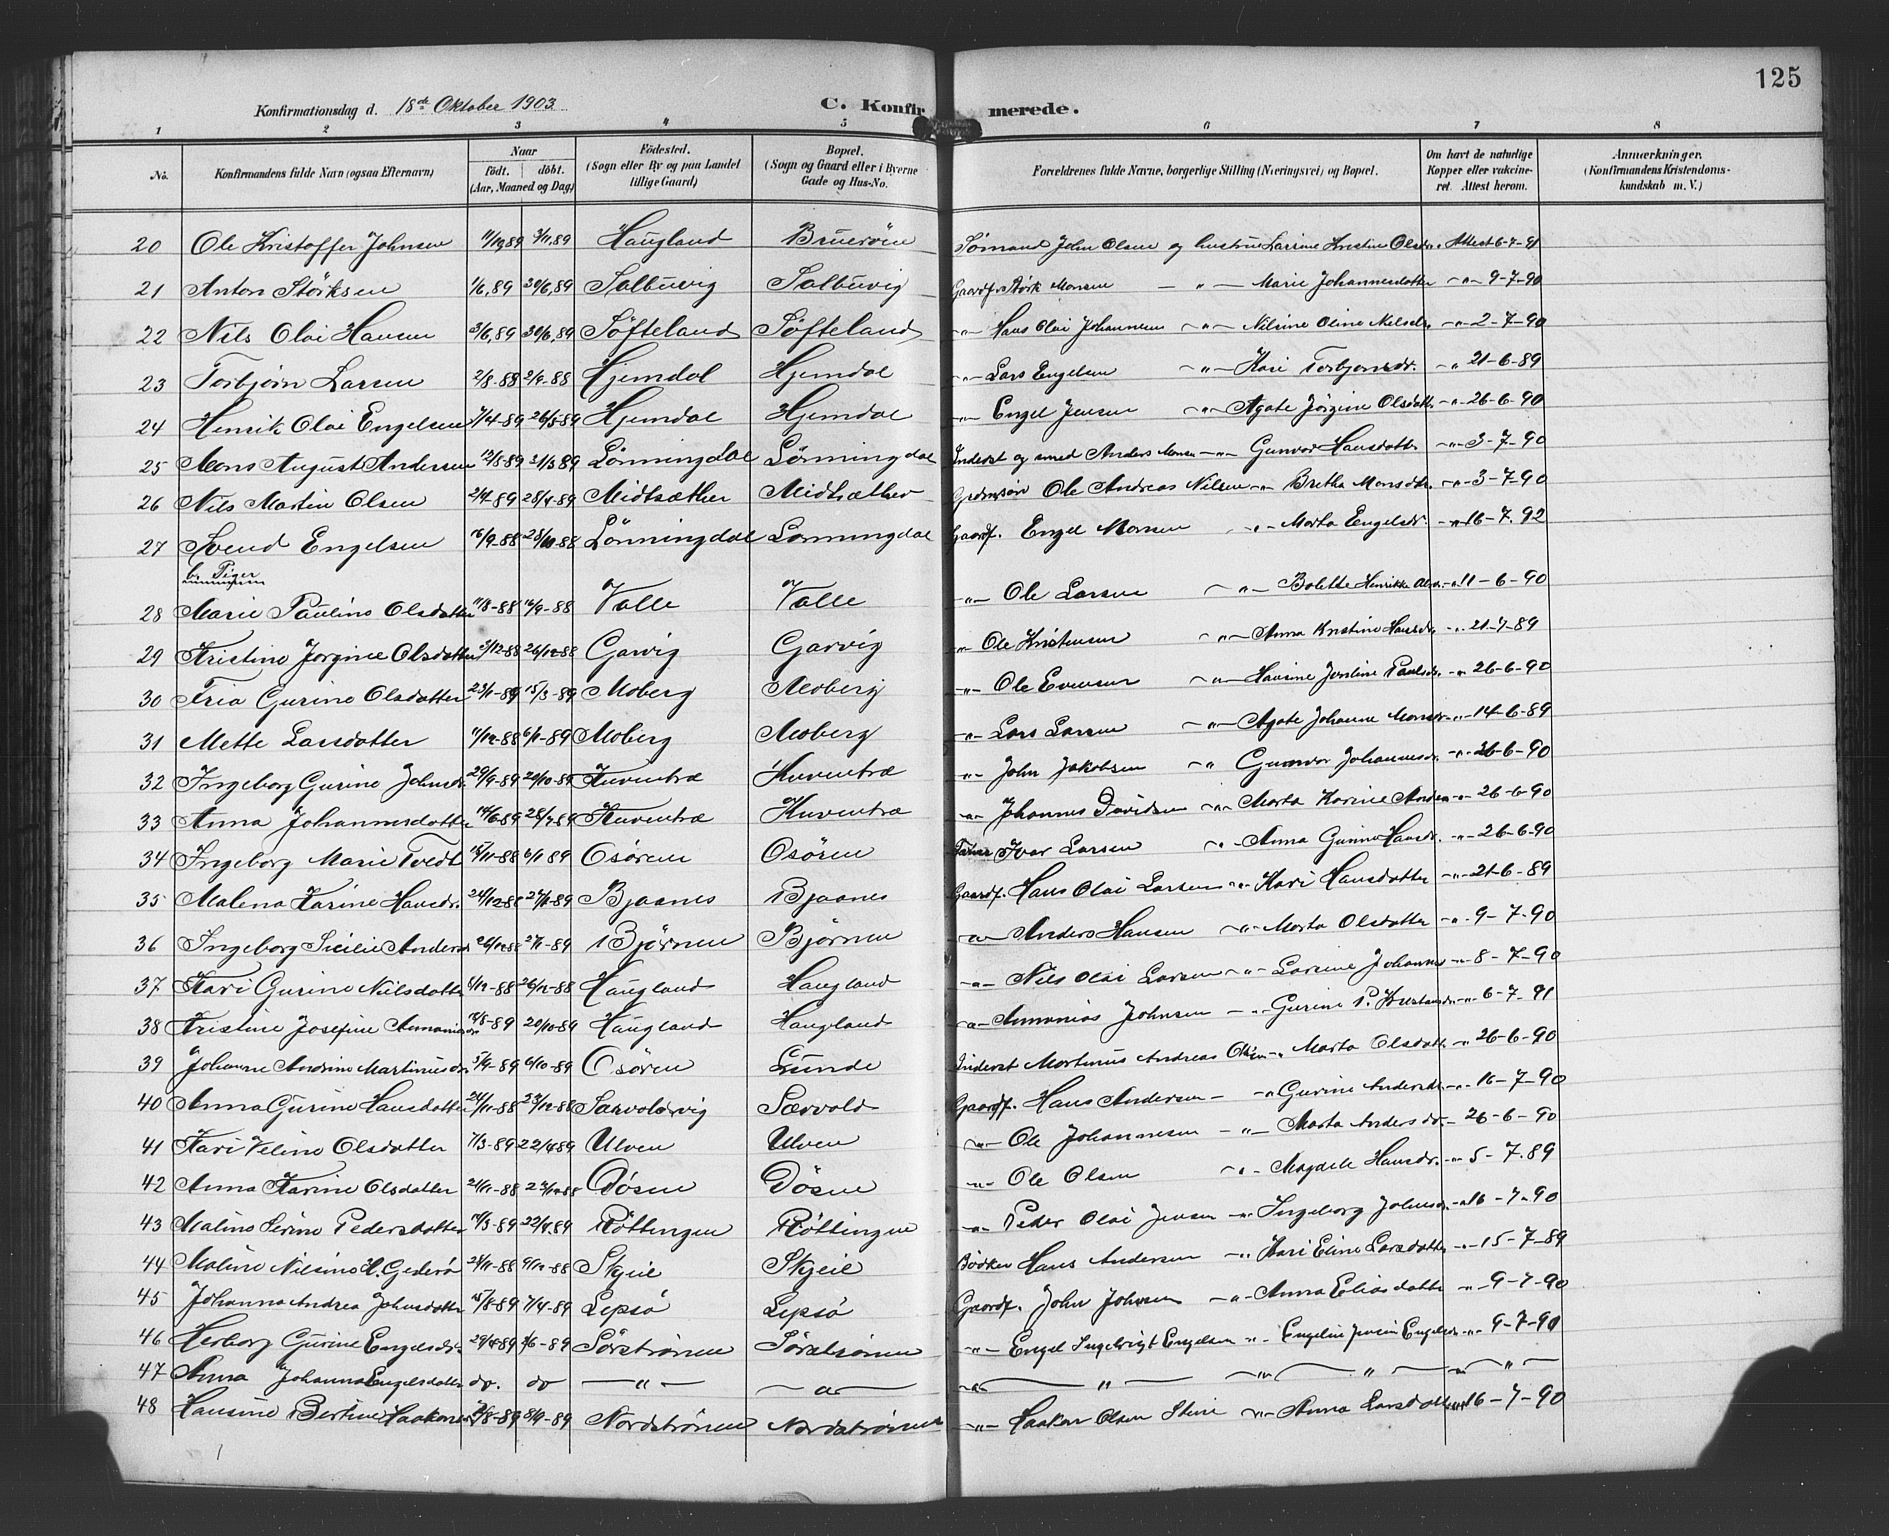 125
Konfirmationsdag d. 18de Oktober 1903. C. Konfirmerede.
1 2 3 4 5 6 7 8
No. Konfirmandens fulde Navn (ogsaa Efternavn) Naar født. døbt. (Aar, Maaned og Dag) Fødested. (Sogn eller By og paa Landet tillige Gaard) Bopæl. (Sogn og Gaard eller i Byerne Gade og Hus-No. Forældrenes fulde Navne, borgerlige Stilling (Næringsvei) og Bopæl. Om havt de naturlige Kopper eller vakcineret. Attest herom. Anmærkninger. (Konfirmandens Kristendomskundskab m. V.)
20 Ole Kristoffer Johnsen 11/10,89 3/11,89 Haugland Bruerøen Sømand John Olsen og hustru Larsine Kristine Olsdr. Attest 6-7-91
21 Anton Störksen 1/6,89 30/6,89 Salbuvig Salbuvig Gaardf. Störk Monsen — " — Marie Johannesdatter -"- 9-7-90
22 Nils Olai Hansen 3/6,89 30/6,89 Söfteland Söfteland -"- Hans Olai Johannesen -"- Nilsine Oline Nilsdr. -"- 2-7-90
23 Torbjørn Larsen 2/8-88 2/9-88 Hjemdal Hjemdal -"- Lars Engelsen -"- Kari Torbjørnsdr. -"- 21-6-89
24 Henrik Olai Engelsen 7/4-89 26/5-89 Hjemdal Hjemdal -"- Engel Jensen -"- Agate Jörgine Olsdatter -"- 26-6-90
25 Mons August Andersen 12/8-89 Lönningdal Lönningdal Inderst og smed Anders Monsen -"- Gunvor Hansdatter -"- 3-7-90
26 Nils Martin Olsen 2/4-89 28/4-89 Midtsæther Midtsæther Ole Andreas Nilsen -"- Bretha Monsdtr. -"- 3-7-90
27 Svend Engelsen 16/9-88 28/10-88 Lönningdal Lönningdal Gaardf. Engel Monsen -"- Marta Engelsdr. -"- 16-7-92
b. Piger
28 Marie Pauline Olsdatter 11/8-88 16/9-88 Valle Valle -"- Ole Larsen -"- Bolette Henrikke -"- 11-6-90
29 Kristine Jorgine Olsdatter 3/12-88 26/12-88 Garvig Garvig -"- Ole Kristensen -"- Anna Kristine Hansdr. -"- 21-7-89
30 Gurine Olsdatter 23/1-89 15/3-89 Moberg Moberg -"- Ole Evensen -"- Hansine Paulsdr. -"- 26-6-90
31 Mette Larsdatter 11/12-88 6/1-89 Moberg Moberg -"- Lars Larsen -"- Agate Johanne Monsdr. -"- 14-6-89
32 Ingeborg Gurine Johnsdr. 29/9-89 20/10-89 Kuventræ Kuventræ -"- John Jakobsen -"- Gunvor Johannesdr. -"- 26-6-90
33 Anna Johannesdatter 14/6-89 28/7-89 Kuventræ Kuventræ -"- Johannes Davidsen -"- Marta Karine -"- 26-6-90
34 Ingeborg Marie Tvedt 15/11-88 6/1 89 Osören Osören Ivar Larsen -"- Anna Gurine Hansdr. -"- 26-6-90
35 Malena Karine Hansdr. 24/12-88 27/1-89 Bjaanes Bjaanes Gaardf. Hans Olai Larsen -"- Kari Hansdatter -"- 21-6-89
36 Ingeborg Sicilie Andersdr. 26/12-88 2/1-89 Björnen Björnen -"- Anders Hansen -"- Marta Olsdatter -"- 9-7-90
37 Kari Gurine Nilsdatter 6/12-88 26/12-88 Haugland Haugland -"- Nils Olai Larsen -"- Larsine Johannes -"- 8-7-90
38 Kristine Josefine Ananiasdr. 18/8-89 20/10-89 Haugland Haugland -"- Ananias Johnsen -"- Gurine P. Kristansdr. -"- 6-7-91
39 Johanne Andrine Martinusdr. 5/9-89 6/10-89 Osören Lunde Inderst Martinus Andreas Olsen -"- Marta Olsdatt. -"- 26-6-90
40 Anna Gurine Hansdatter 24/11-88 23/12-88 Særvoldsvig Særvold Gaardf. Hans Andersen -"- Gurine Andersdr. -"- 16-7-90
41 Kari Veline Olsdatter 7/3-89 22/4-89 Ulven Ulven -"- Ole Johannesen -"- Marta Andersdr. -"- 26-6-90
42 Anna Karine Olsdatter 21/11-88 Døsen Døsen -"- Ole Olsen -"- Magdele Hansdr. -"- 5-7.89
43 Malina Serine Pedersdatter 14/3-89 22/4.89 Røttingen Røttingen -"- Peder Olai Jensen -"- Ingeborg Johnsdr. -"- 16-7-90
44 Maline Nilsine H. Gederö 24/11-88 9/12-88 Skjeie Skjeie Bödker Hans Andersen -"- Kari Eline Larsdatter -"- 15-7-89
45 Johanna Andrea Johnsdatter 15/8-89 Lepsö Lepsö Gaardf. John Johnsen -"- Anna Eliasdatter -"- 9-7-90
46 Herborg Gurine Engelsdr. Sörströnen Sörströnen -"- Engel Ingebrigt Engelsen -"- Engeline Engelsdr. -"- 9-7-90
47 Anna Johanna Engelsdatter do. do — " — — " — -"- — " — -"- " -"-
48 Hansine Bertine Haakonsdr. 8/9-89 Nordströnen Nordströnen -"- Haakon Olsen -"- Anna Larsdatter -"- 16-7-90